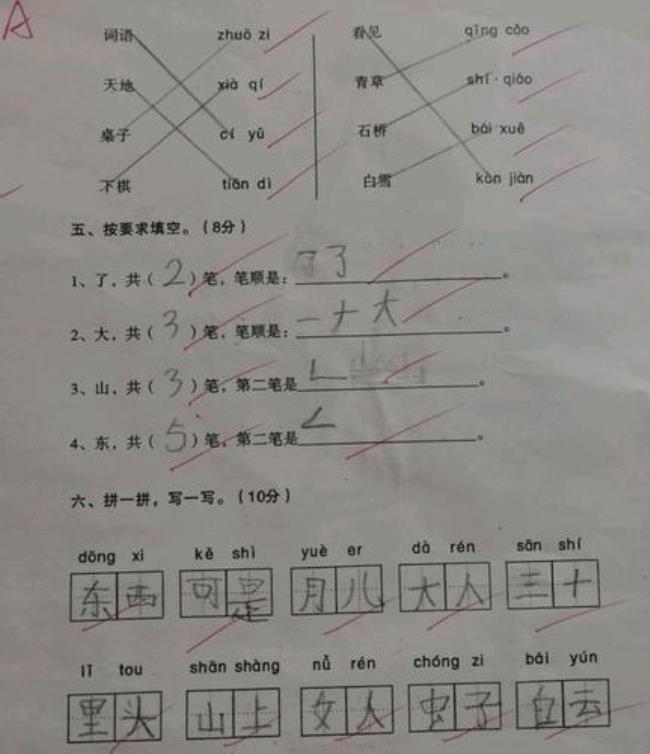 A
词语 zhuō zi 看见 qīng cǎo
天地 xià qí 青草 shí·qiáo
桌子 cí yǔ 石桥 bái xuě
下棋 tiān dì 白雪 kàn jiàn
五、按要求填空。(8分)
1、了,共(2)笔,笔顺是: 了。
2、大,共(3)笔,笔顺是:一ナ大。
3、山,共(3)笔,第二笔是ㄴ。
4、东,共(5)笔,第二笔是ㄥ。
六、拼一拼,写一写。(10分)
dōng xi kě shì yuè er dà rén sān shí
东西 可是 月儿 大人 三十
lǐ tou shān shàng nǚ rén chóng zi bái yún
里头 山上 女人 虫子 白云